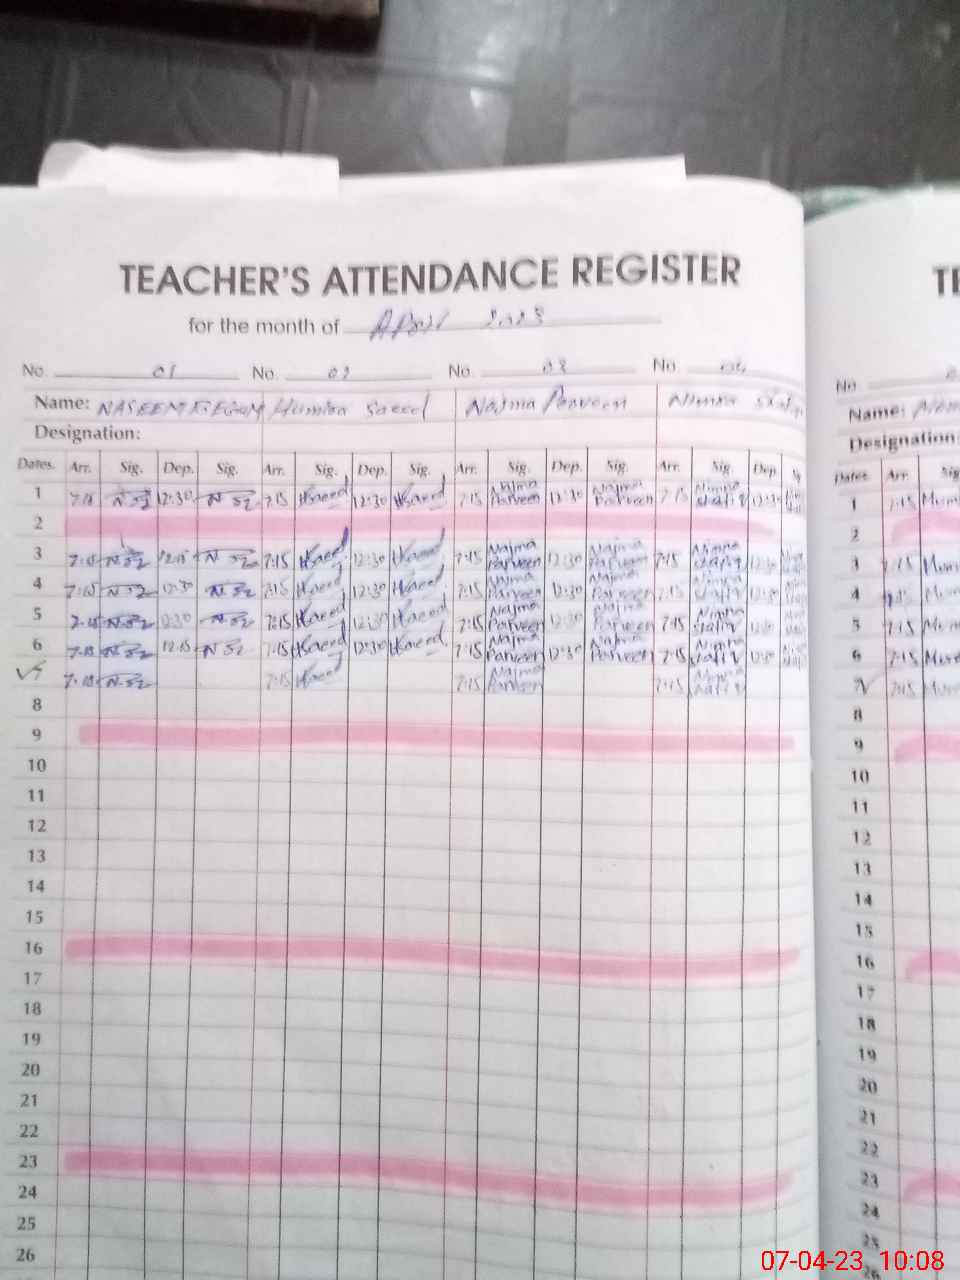 TEACHER'S ATTENDANCE REGISTER
for the month of April 2023
No. 01 No. 02 No. 03 No 04
Name: NASEEM BEGUM Humira Saeed Najma Parveen Nimra Shafiq
Designation:
Dates. Arr. Sig. Dep. Sig. Arr. Sig. Dep. Sig. Arr. Sig. Dep. Sig. Arr. Sig. Dep. Sig
1 7:15 12:30 7:15 HSaeed 12:30 HSaeed 7:15 Najma Parveen 12:30 Najma Parveen 7:15 Nimra Shafiq 12:30
2
3 7:15 12:15 7:15 HSaeed 12:30 HSaeed 7:15 Najma Parveen 12:30 Najma Parveen 7:15 Nimra Shafiq 12:30
4 7:15 12:30 7:15 HSaeed 12:30 HSaeed 7:15 Najma Parveen 12:30 Najma Parveen 7:15 Nimra Shafiq 12:30
5 7:15 12:30 7:15 HSaeed 12:30 HSaeed 7:15 Najma Parveen 12:30 Najma Parveen 7:15 Nimra Shafiq 12:30
6 7:15 12:15 7:15 HSaeed 12:30 HSaeed 7:15 Najma Parveen 12:30 Najma Parveen 7:15 Nimra Shafiq 12:30
7 7:15 7:15 HSaeed 7:15 Najma Parveen 7:15 Nimra Shafiq
8
9
10
11
12
13
14
15
16
17
18
19
20
21
22
23
24
25
26
No
Name:
Designation:
Dates Arr.
1 7:15
2
3 7:15
4
5 7:15
6 7:15
7 7:15
8
9
10
11
12
13
14
15
16
17
18
19
20
21
22
23
24
25
26
07-04-23 10:08